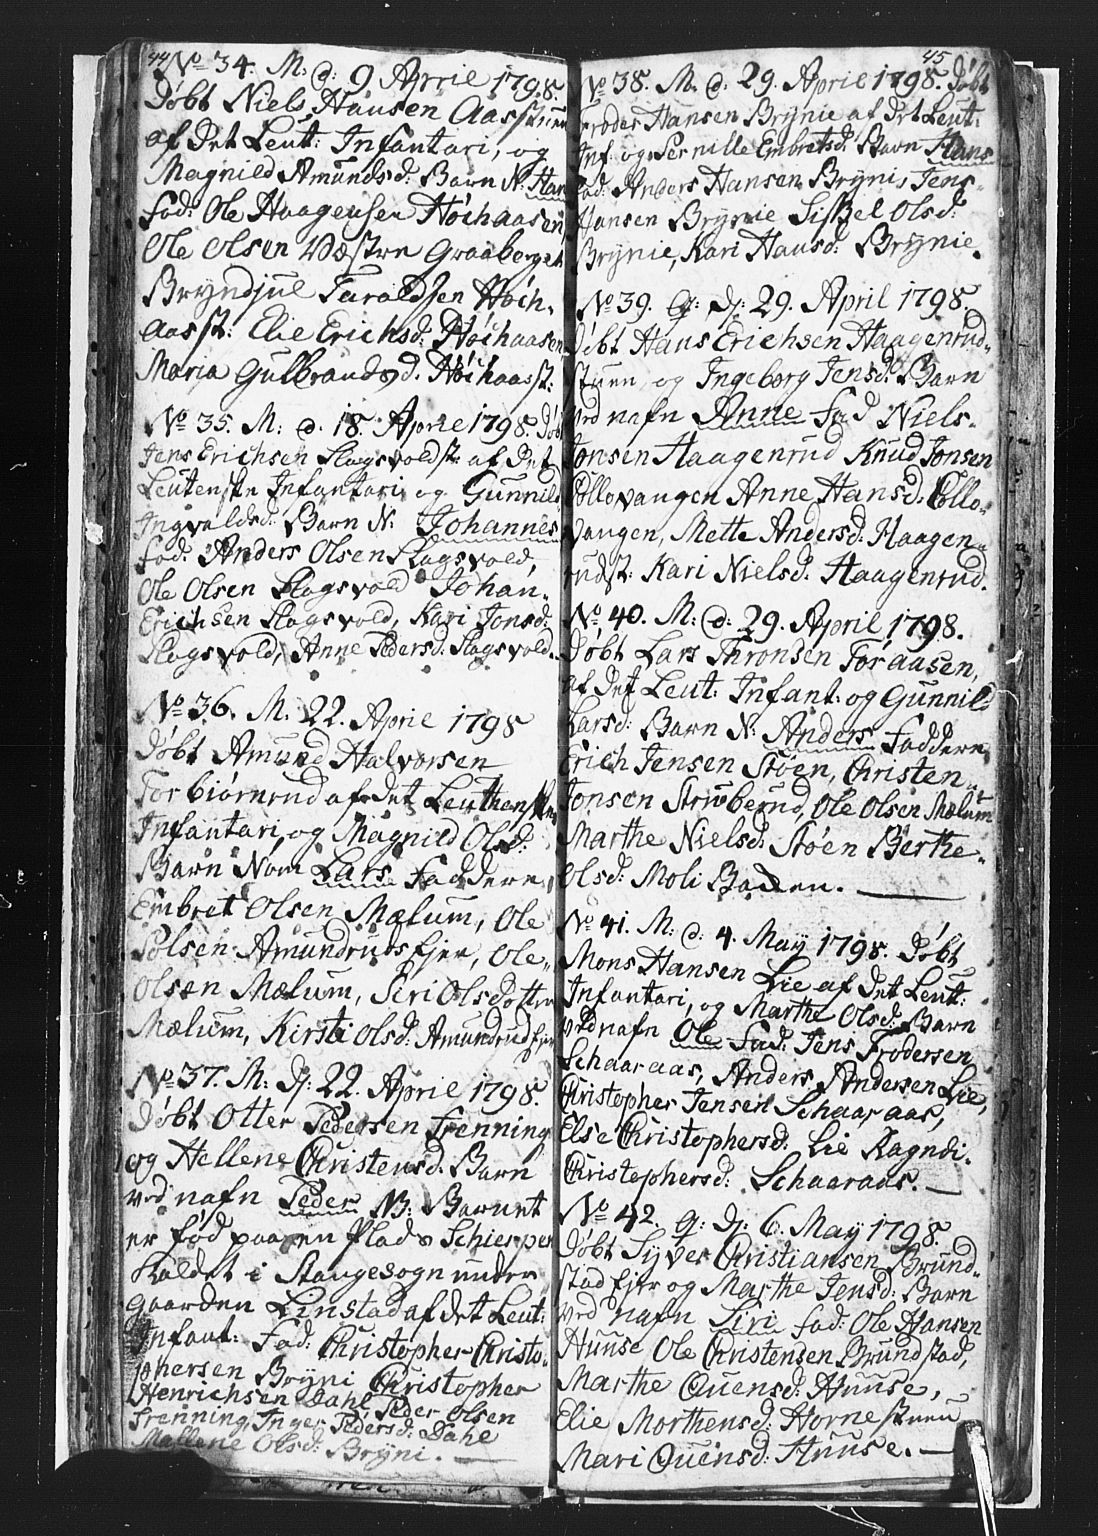 44
No 34. M: d: 9 Aprie 1798.
Døbt Niels Hansen Aasstuen
af det Leut: Infantari, og
Magnild Amundsd: Barn N: Han
fad: Ole Haagensen Høihaasen,
Ole Olsen Væstre Graaberget
Bryndjul Taraldsen Høih-
aasst: Elie Erichsd: Høihaasen
Maria Gulbrandsd. Høihaasst:
No 35. M: d. 18. Aprie 1798. Døbt
Jens Erichsen Slagsvoldst: af det
Leutenske Infantari og Gunnild
Ingvaldsd: Barn N: Johannes
fad: Anders Olsen Slagsvold,
Ole Olsen Slagsvold Johan-
Erichsen Slagsvold, Kari Jonsd:
Slagsvold, Anne Pedersd: Slagsvold.
No 36. M: 22. Aprie 1798
Døbt Amund Halvorsen
Torbiørnrud af det Leuthenske
Infantari, og Magnild Olsd:
Barn Nom Lars Faddere
Embret Olsen Mælum, Ole
Polsen Amundrudsfjer, Ole-
Olsen Mælum, Siri Olsdotter
Mælum, Kirsti Olsd: Amundrudfjer
No 37. M: Dj: 22. April 1798.
Døbt Otter Pedersen Frenning
og Hellene Christensd: Barn
ved nafn Peder NB: Barnet
er fød paa en Plads Schierpen
Kaldet i Stangesogn under
Gaarden Linstad af det Leut:
Infant: Fad: Christopher Christo-
phersen Bryni Christopher
Henrichsen Dahl Peder Olsen
Frenning, Inger Pedersd: Dahl
Mallene Olsd: Bryni.
45
No 38. M. d. 29. April 1798. Døbt
Froder Hansen Brynie af det Leut:
Inf: og Pernille Embretsd: Barn Hans
fad: Anders Hansen Bryni, Jens-
Hansen Brynie Sissel Olsd:
Brynie, Kari Hansd: Brynie.
No 39. G: Dj: 29. April 1798.
Døbt Hans Erichsen Haagenrud-
stuen, og Ingeborg Jensd: Barn
ved nafn Anne fad Niels-
Jonsen Haagenrud Knud Jonsen
Collovangen Anne Hansd: Collo-
vangen, Mette Andersd: Haagen-
rudst: Kari Nielsd: Haagenrud.
No 40. M: d: 29. April 1798.
Døbt Lars Thronsen Toraasen,
af det Leut: Infant: og Gunnild
Larsd: Barn N: Anders Faddere
Erich Jensen Støen, Christen-
Jonsen Struberud, Ole Olsen Mælum
Marthe Nielsd: Støen Berthe-
Olsd: Moli Bakken.
No 41. M. d: 4. May 1798. Døbt
Mons Hansen Lie af det Leut:
Infantari, og Marthe Olsd: Barn
ved nafn Ole Fad: Jens Frodersen
Schaaraas, Anders Andersen Lie,
Christopher Jensen Schaaraas,
Else Christophersd: Lie Ragndi-
Christophersd: Schaaraas.
No 42. G: Dj: 6. May 1798.
Døbt Syver Christiansen Brund-
stadfjer og Marthe Jensd: Barn
ved nafn Siri fad: Ole Hansen
Huuse Ole Christensen Brundstad,
Marthe Ouensd: Huuse,
Elie Morthensd: Hornestuen
Mari Ouensd: Huuse.